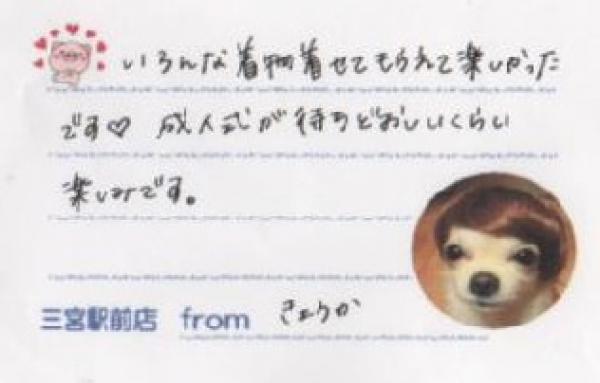 いろんな着物着せてもらえて楽しかった
です♡ 成人式が待ちどおしいくらい
楽しみです。
三宮駅前店 from きょうか